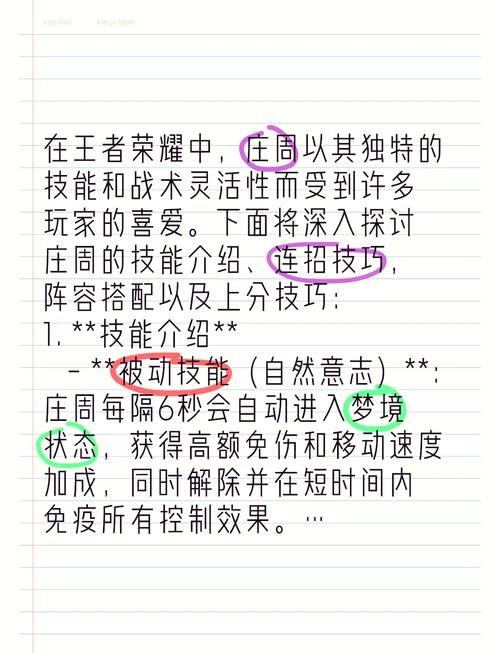 在王者荣耀中，庄周以其独特的
技能和战术灵活性而受到许多
玩家的喜爱。下面将深入探讨
庄周的技能介绍、连招技巧，
阵容搭配以及上分技巧：
1. **技能介绍**
- **被动技能（自然意志）**：
庄周每隔6秒会自动进入梦境
状态，获得高额免伤和移动速度
加成，同时解除并在短时间内
免疫所有控制效果。…